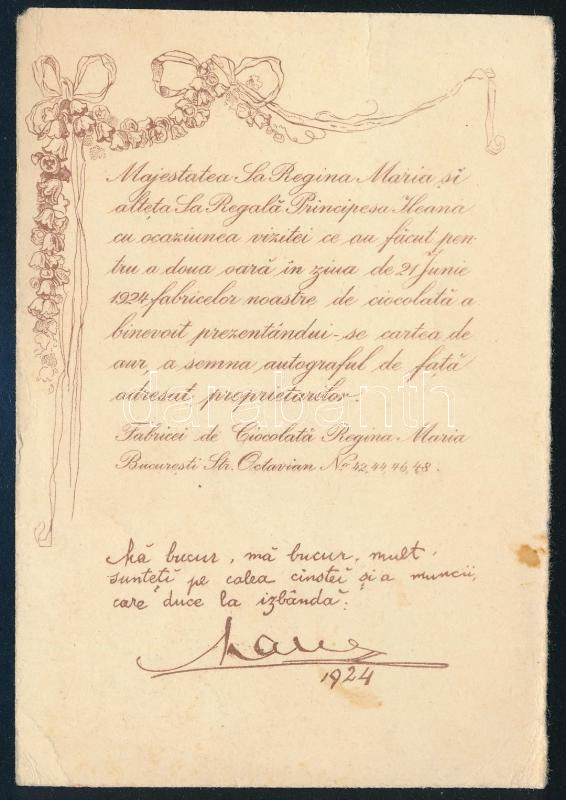 Majestatea Sa Regina Maria și
alteța Sa Regală Principesa Ileana
cu ocaziunea vizitei ce au făcut pen-
tru a doua oară în ziua de 21 Iunie
1924 fabricelor noastre de ciocolată a
binevoit prezentândui-se cartea de
aur, a semna autograful de față
adresat proprietarilor.
Fabricei de Ciocolată Regina Maria
București Str. Octavian No 42, 44, 46, 48.
Mă bucur, mă bucur, mult,
sunteți pe calea cinstei și a muncii,
care duce la izbândă.
Maria
1924
darabanth